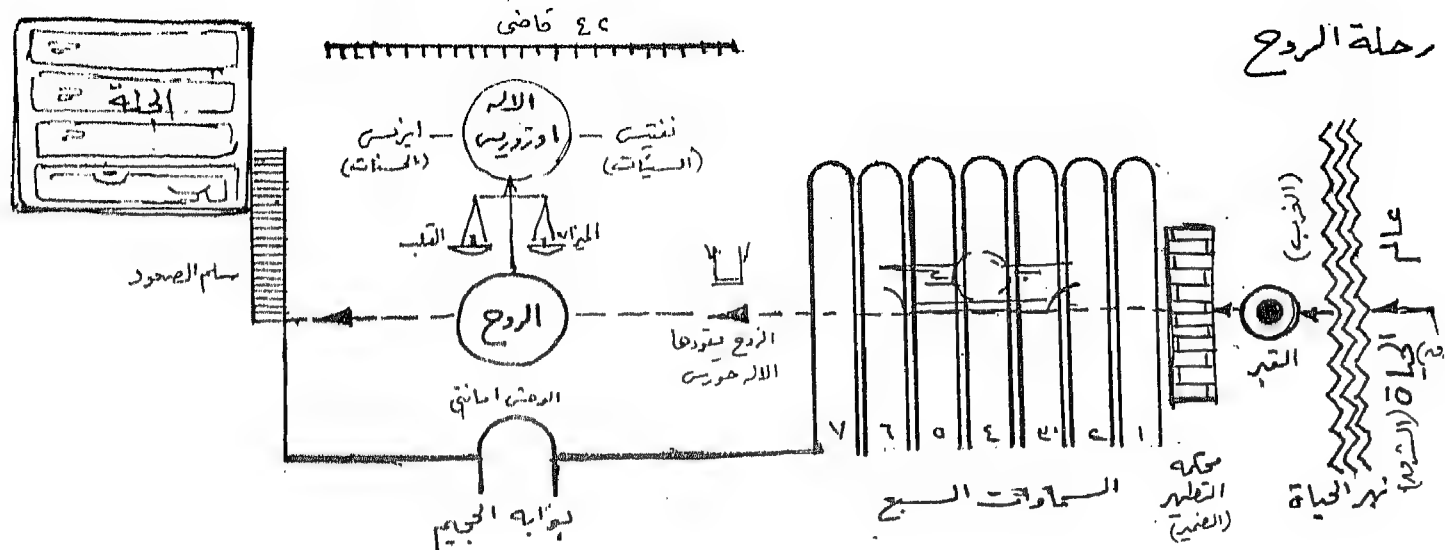 رحلة الروح
٤٢ قاضى
الاله
اوزوريس
ايزيس
(الحسنات)
نفتيس
(السيئات)
القلب
الميزان
الروح
الجنة
سلم الصعود
الروح يقودها
الاله حورس
الوحش امانتى
بوابه الجحيم
٧ ٦ ٥ ٤ ٣ ٢ ١
السماوات السبع
محكمه
التطهر
(الضمير)
القبر
(الغرب)
نهر الحياة
عالم
الحياة